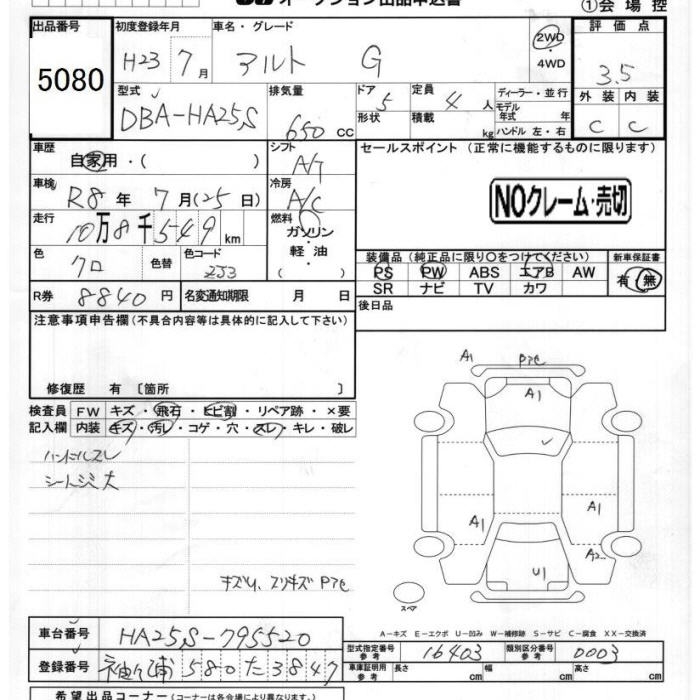 オークション出品申込書
①会場控
出品番号 5080
初度登録年月 H23 7月
車名・グレード アルト G
2WD・4WD
評価点 3.5
型式 DBA-HA25S
排気量 650 CC
ドア 5
形状
定員 4人
積載 kg
ディーラー・並行
モデル年式 年式
ハンドル 左・右
外装 C 内装 C
車歴 自家用・( )
シフト A/T
セールスポイント (正常に機能するものに限ります)
車検 R8年7月(25日)
冷房 A/C
NOクレーム・売切
走行 10万8千549km
燃料 ガソリン・軽油
色 クロ 色替 色コード ZJ3
装備品(純正品に限り○をつけてください) 新車保証書
PS PW ABS エアB AW
SR ナビ TV カワ
有・無
R券 8840円 名変通知期限 月 日
後日品
注意事項申告欄(不具合内容等は具体的に記入して下さい)
修復歴 有〔箇所 〕
検査員記入欄
FW キズ・飛石・ヒビ割・リペア跡・×要
内装 キズ・汚レ・コゲ・穴・スレ・キレ・破レ
ハンドルスレ
シートシミ大
キズU、スリキズ Pアと
A1 Pアと
A1
A1 A1
A2
U1
スペア
A-キズ E-エクボ U-凹み W-補修跡 S-サビ C-腐食 XX-交換済
車台番号 HA25S-795520
登録番号 580 た 3847
型式指定番号 参考 16403 類別区分番号 参考 0003
車庫証明用 参考 長さ cm 幅 cm 高さ cm
希望出品コーナー(コーナーは各会場により異なります。)